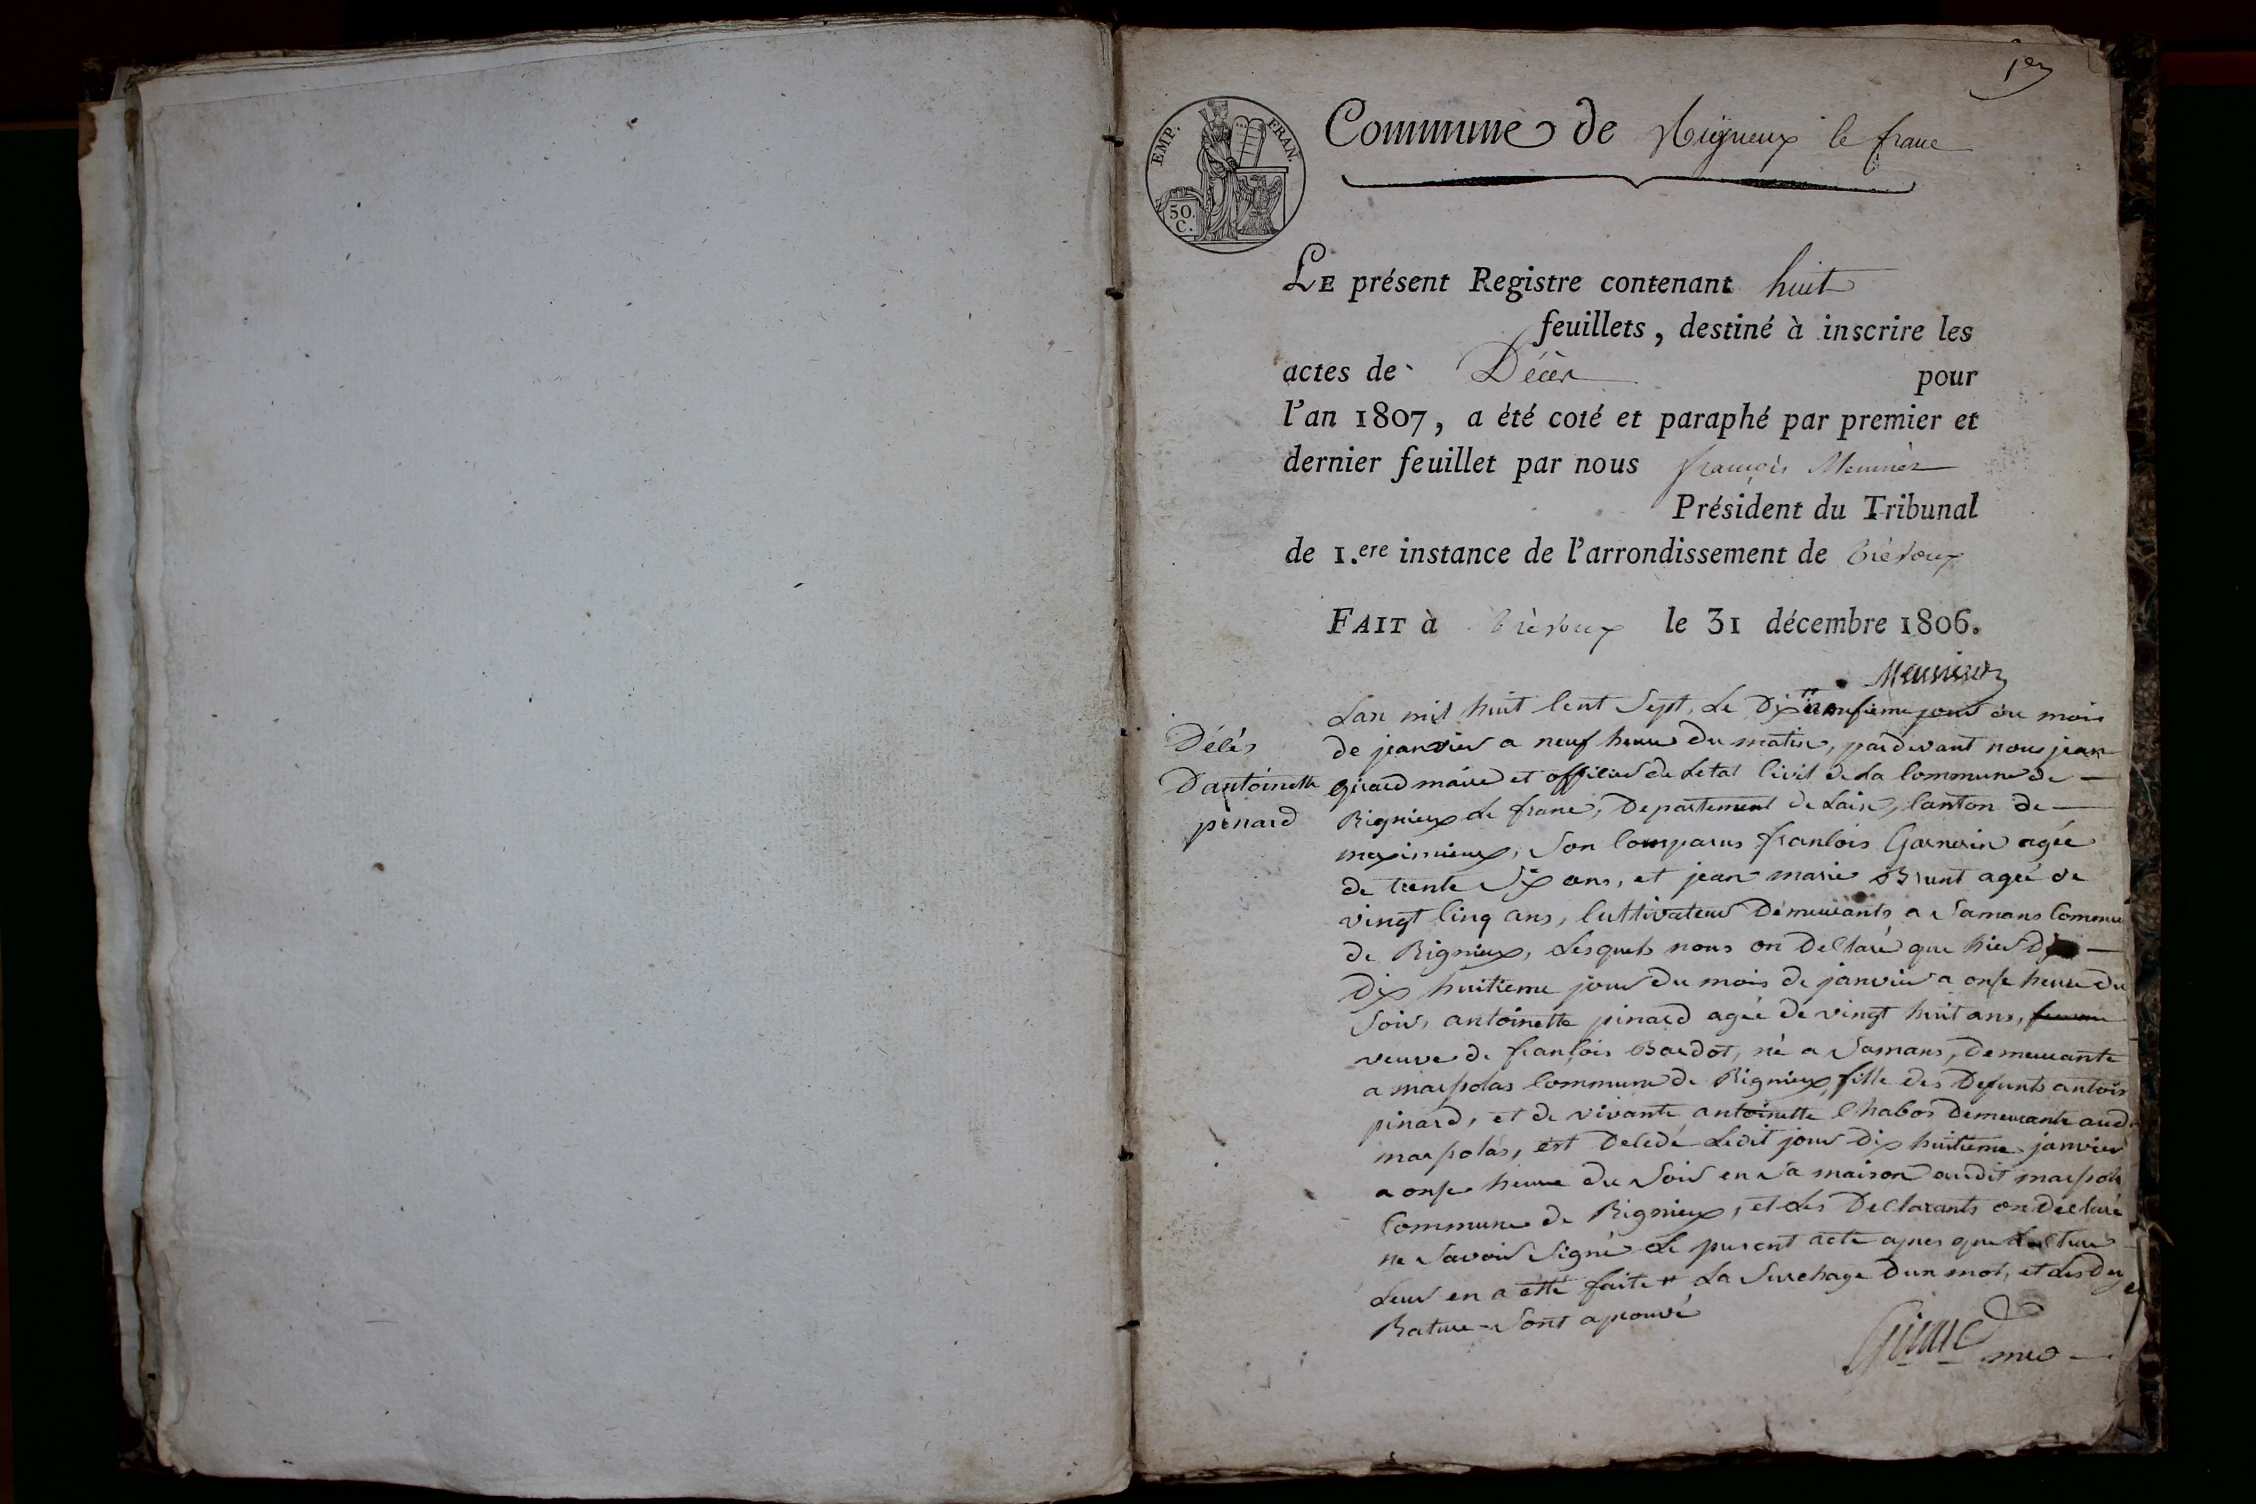 1er
EMP. FRAN.
50.
C.
Commune de Rigneux le franc
LE présent Registre contenant huit
feuillets, destiné à inscrire les
actes de Décès pour
l'an 1807, a été coté et paraphé par premier et
dernier feuillet par nous françois Meunier
Président du Tribunal
de 1.ere instance de l'arrondissement de trévoux
FAIT à trévoux le 31 décembre 1806.
Meunier
Décès
D'antoinette
pinard
Lan mil huit Cent Sept, Le Dix neufieme jour du mois
de janvier a neuf heure du matin, pardevant nous jean
Girard maire et officier de Letat Civil de La Commune de
Rignieux Le franc, Departement de Lain, Canton de
meximieux, Son Comparus franCois Garnerin agée
de trente Six ans, et jean marie Brunt agée de
vingt Cinq ans, Cultivateur Demeurants a Samans Commune
de Rignieux, Lesquels nous on DeClaré que hier
Dix huitieme jour du mois de janvier a onse heure du
Soir, antoinette pinard agée de vingt huit ans, femme
veuve de françois Bardot, né a Samans, Demeurante
a marsolas Commune de Rignieux, fille des Defunts antoine
pinard, et de vivante antoinette Chabos Demeurante aud.
marsolas, est DeCedé Ledit jour Dix huitieme janvier
a onse heure du Soir en Sa maison audit marsolas
Commune de Rignieux, et Les DeClarants on declaré
ne Savoir Signé Le present acte apres que Lecture
Leur en a etté faite La Surchage D'un mot, et Les Deux
Rature Sont aprouvé
Girard mre